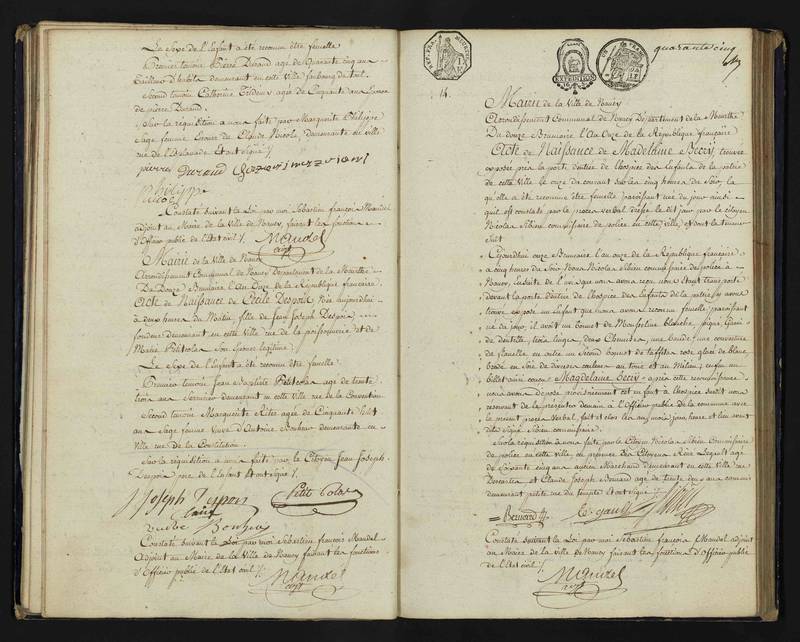 Le Sexe de l'Enfant a été reconnu être femelle
Premier témoin Pierre Durand agé de Quarante cinq ans
tailleur d'habits demeurant en cette Ville faubourg
Second témoin Catherine agée de Cinquante ans
de pierre Durand.
Sur la réquisition a nous faite par Marguerite Philippe
Sage femme Epouse de Claude Nicolas, demeurante en ville
rue de
pierre Durand
Philippe
Constaté suivant la Loi par moi Sébastien françois Mandel
adjoint au Maire de la Ville de Nancy, faisant les fonctions
d'Officier public de l'Etat civil
Mandel
Mairie de la Ville de Nancy
Arrondissement Communal de Nancy Département de la Meurthe
Du Douze Brumaire l'An Onze de la République française
Acte de Naissance de Cécile née aujourdhui
à deux heures du Matin, fille de Jean Joseph
fondeur demeurant en cette Ville rue de la poissonnerie et de
Marie Petitcolas Son Epouse légitime.
Le Sexe de l'Enfant a été reconnu être femelle.
Premier témoin Jean Baptiste Petitcolas agé de trente
trois ans Serrurier demeurant en cette Ville rue de la Convention
Second témoin Marguerite agée de Cinquante Sept
ans Sage femme Veuve d'Antoine Bonhour demeurante en
Ville rue de la Constitution.
Sur la réquisition a nous faite par le Citoyen Jean Joseph
père de l'Enfant et ont signé
Joseph
Petit Colas
veuve
Constaté suivant la Loi par moi Sébastien françois Mandel
Adjoint au Maire de la Ville de Nancy faisant les fonctions
d'Officier public de l'Etat civil
Mandel
quarante cinq
14.
Mairie de la Ville de Nancy
Arrondissement Communal de Nancy Département de la Meurthe
Du douze Brumaire l'An Onze de la République française
Acte de Naissance de Madelaine Beccy, trouvée
exposée près la porte d'entrée de l'hospice des Enfants de la patrie
de cette Ville le onze du courant sur les cinq heures du Soir, la
qu'elle a été reconnue être femelle paraissant née du jour ainsi
qu'il est constaté par le procès verbal dressé le dit jour par le citoyen
Nicolas commissaire de police en cette ville et dont la teneur
suit
Cejourdhui onze Brumaire l'an onze de la République française
à cinq heures du Soir Nous Nicolas commissaire de police à
Nancy, ensuite de l'avis que nous avons reçu nous étant transporté
devant la porte d'entrée de l'hospice des Enfants de la patrie y avons
trouvé exposé un Enfant que nous avons reconnu femelle paraissant
né du jour, il avait un bonnet de Mousseline blanche piqué garni
de dentelle, trois langes deux Chemises, une bande, une couverture
de flanelle en outre un Second bonnet de taffetas rose glacé de blanc
brodé en soie de diverses couleurs au tour et au Milieu; enfin un
billet ainsi conçu Magdelaine Beccy - après cette reconnaissance
nous avons déposé provisoirement cet enfant à l'hospice susdit nous
réservant de le présenter demain à l'Officier public de la commune avec
le présent procès verbal, fait et clos les an, mois, jour, heure et lieu avant
dits Signé commissaire.
Sur la réquisition à nous faite par le Citoyen Nicolas Commissaire
de police en cette ville en présence des Citoyens agé
de Soixante cinq ans ancien Marchand demeurant en cette Ville rue
et Claude Joseph agé de trente deux ans commis
demeurant petite rue du temple et ont signé
Constaté suivant la Loi par moi Sébastien françois Mandel adjoint
au Maire de la ville de Nancy faisant les fonctions d'Officier public
de l'Etat civil
Mandel